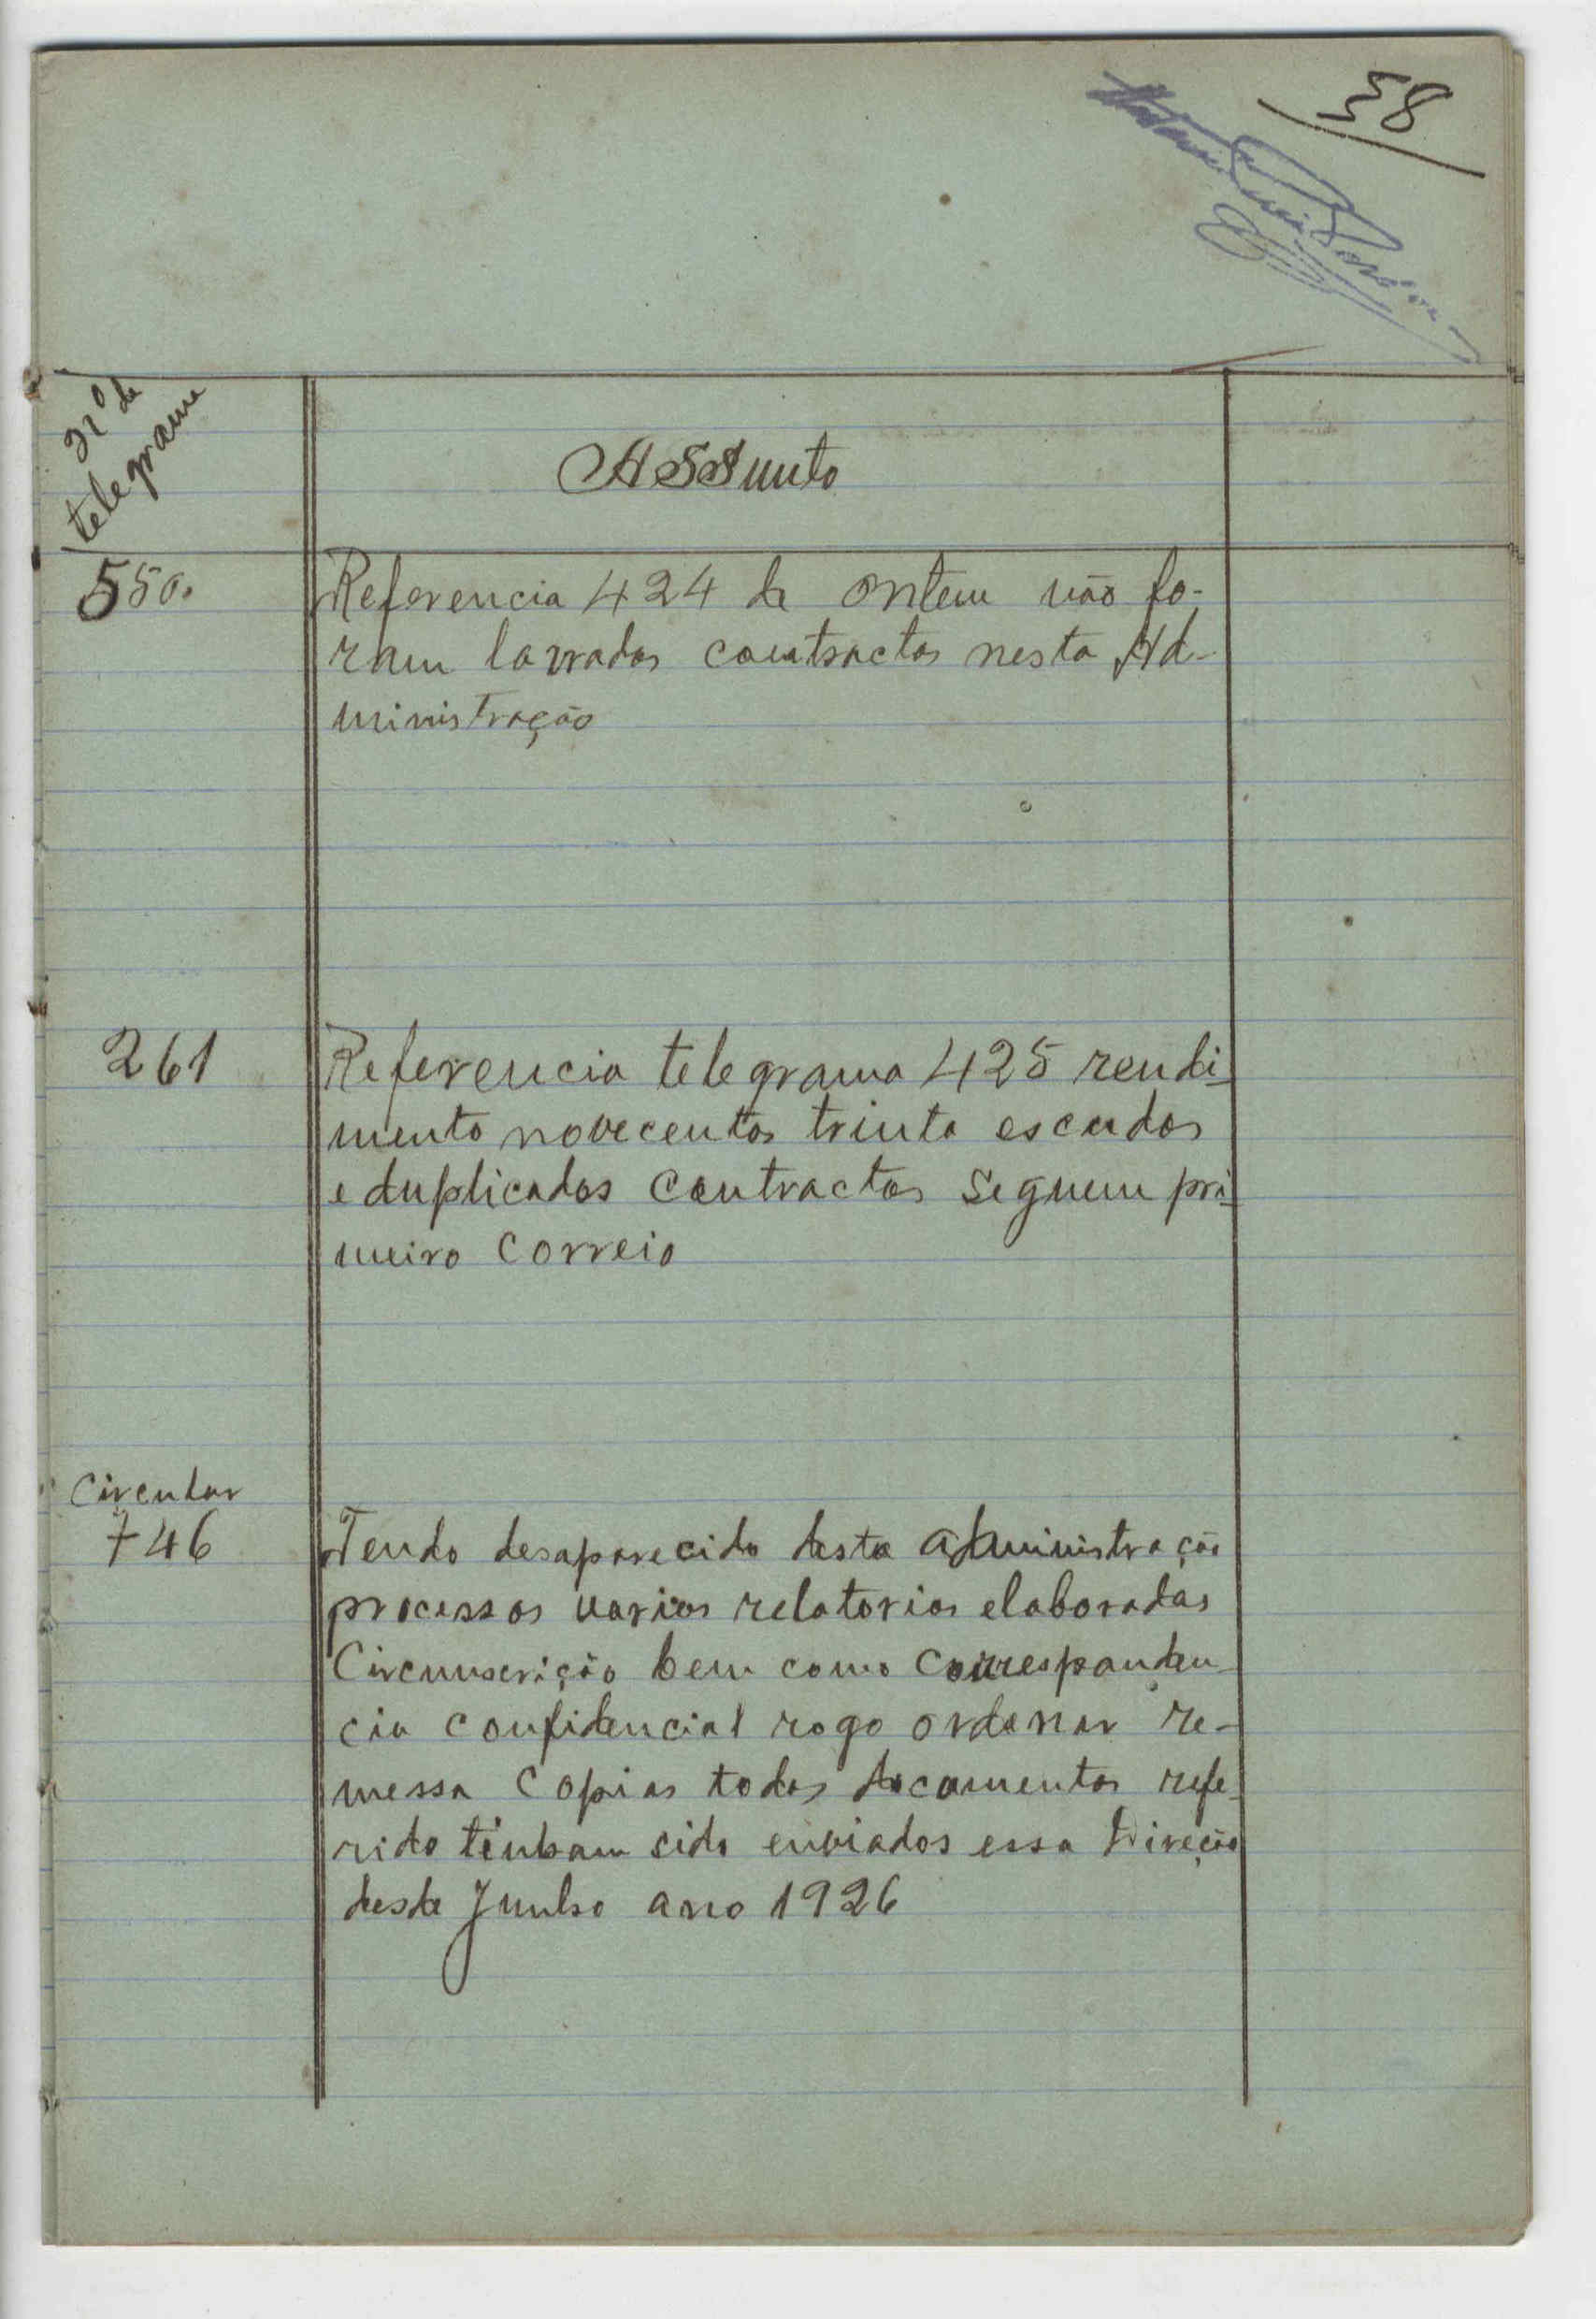 58
nº de
telegrama
Assunto
550.
Referencia 424 de ontem não fo-
ram lavrados contractos nesta Ad-
ministração
261
Referencia telegrama 425 rendi-
mento novecentos trinta escudos
e duplicados contractos seguem pri-
meiro correio
Circular
746
Tendo desaparecido desta administração
processos varios relatorios elaborados
Circunscrição bem como correspanden
cia confidencial rogo ordenar re-
messa copias todos documentos refe-
rido tinham sido enviados essa Direção
desde Junho ano 1926